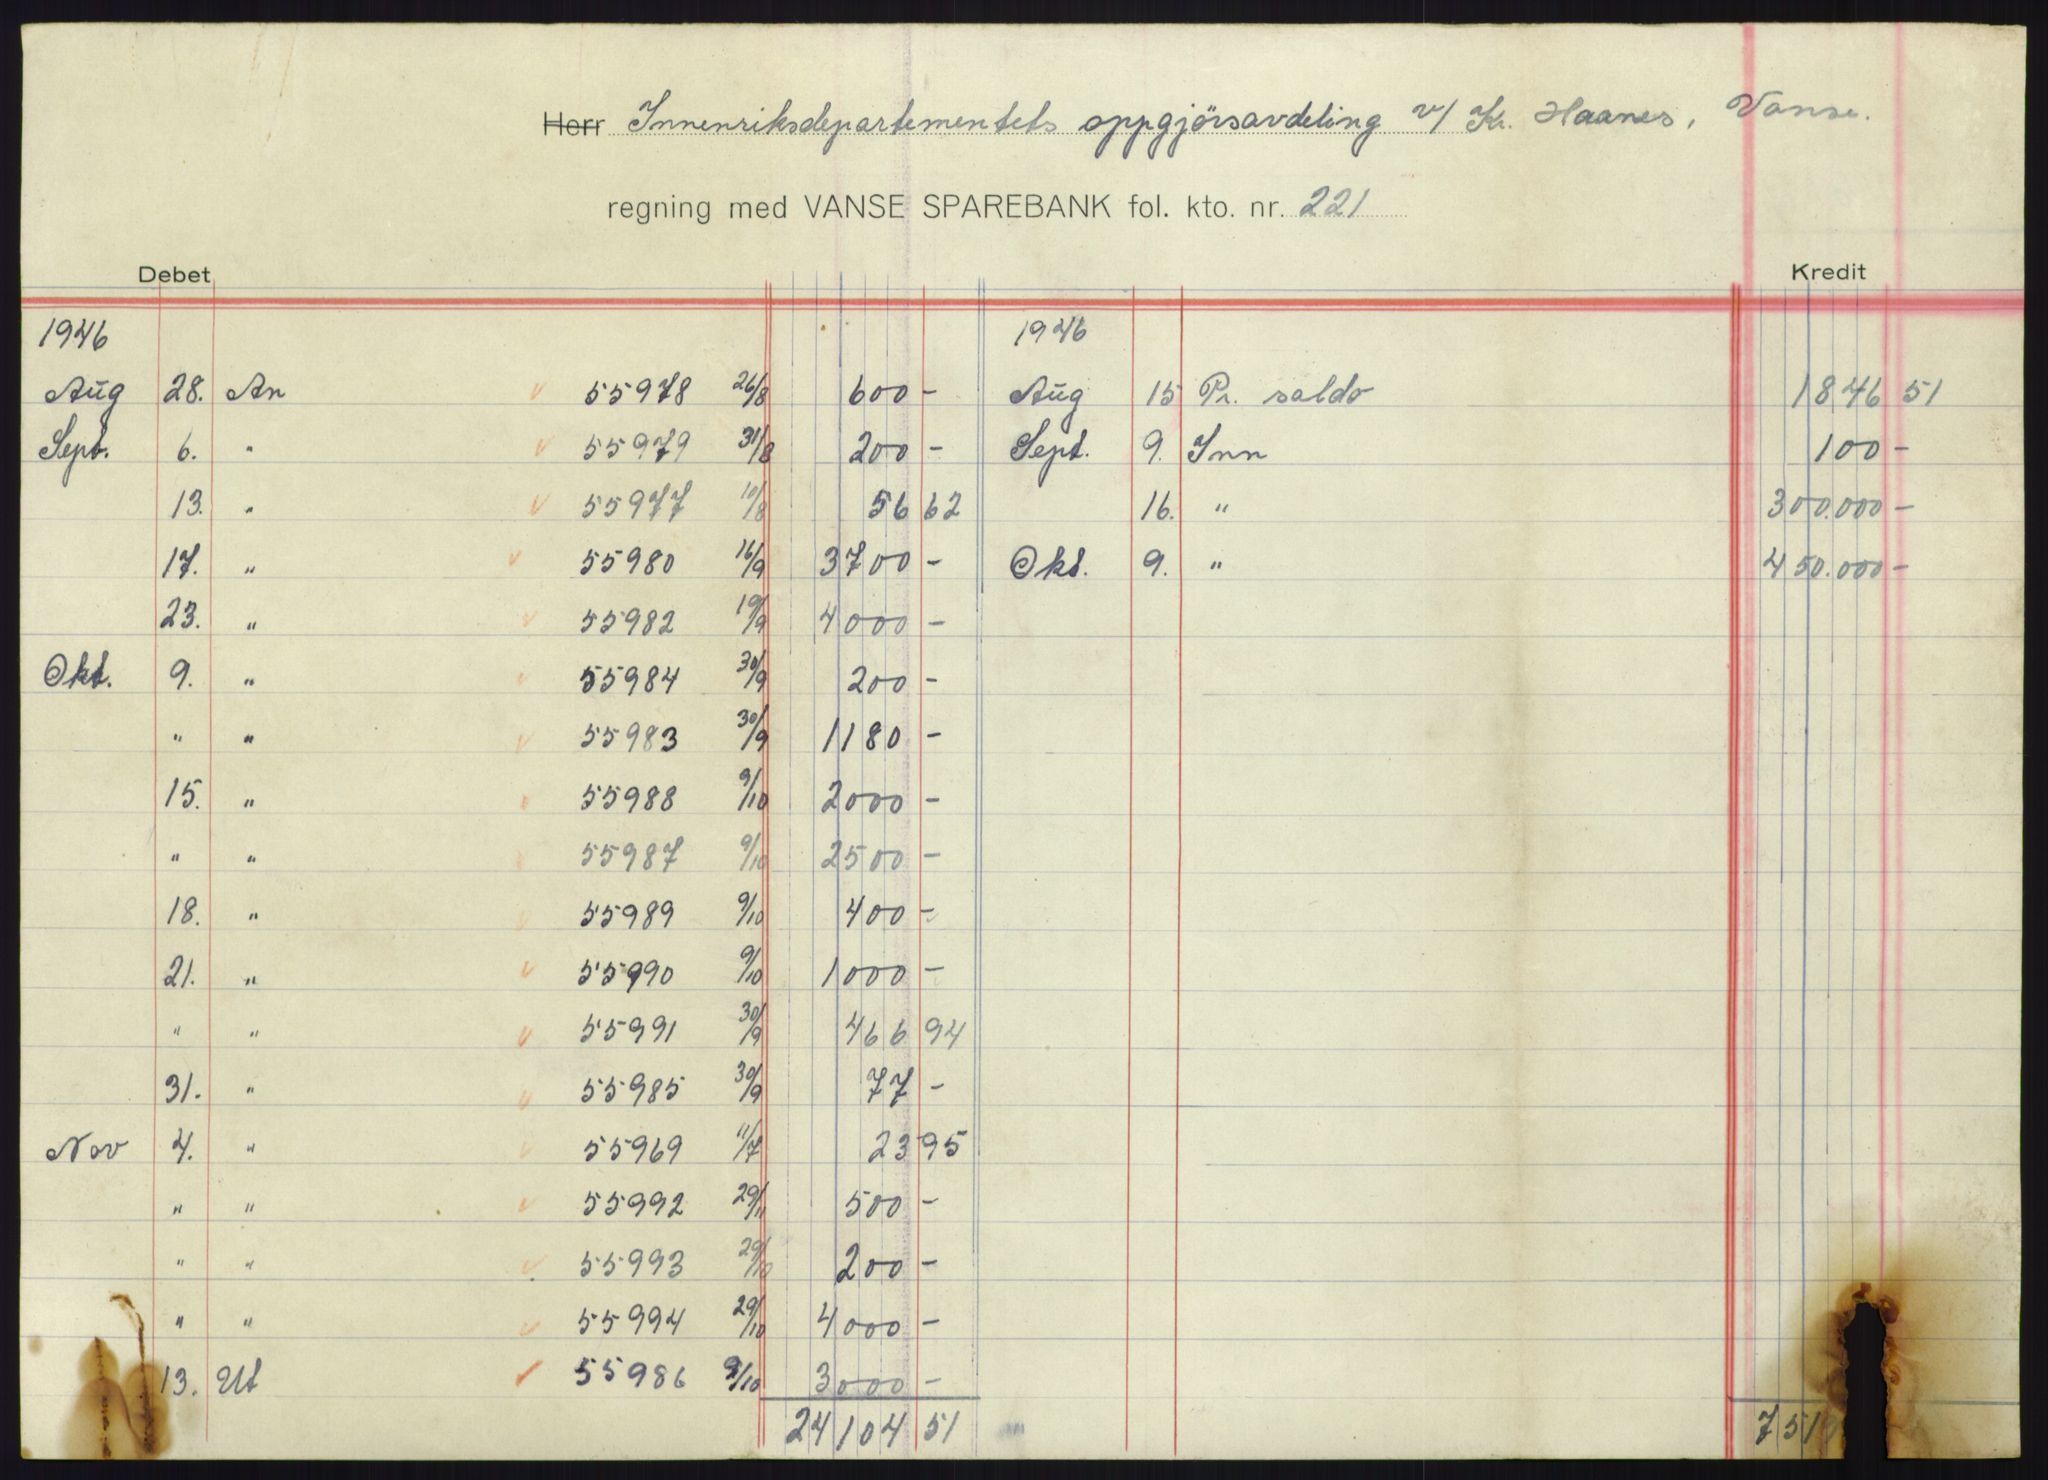 Herr Innenriksdepartementets oppgjörsavdeling v/ Kr. Haanes, Vanse.
regning med VANSE SPAREBANK fol. kto. nr. 221
Debet Kredit
1946 1946
Aug 28. An 55978 26/8 600 - Aug 15 Pr. saldo 1846 51
Sept. 6. " 55979 31/8 200 - Sept. 9. Inn 100 -
13. " 55977 10/8 56 62 16. " 300.000 -
17. " 55980 16/9 3700 - Okt. 9. " 450.000 -
23. " 55982 19/9 4000 -
Okt. 9. " 55984 30/9 200 -
" " 55983 30/9 1180 -
15. " 55988 9/10 2000 -
" " 55987 9/10 2500 -
18. " 55989 9/10 400 -
21. " 55990 9/10 1000 -
" " 55991 30/9 466 94
31. " 55985 30/9 77 -
Nov 4. " 55969 11/7 23 95
" " 55992 29/11 500 -
" " 55993 29/10 200 -
" " 55994 29/10 4000 -
13. Ut 55986 9/10 3000 -
24104 51 751